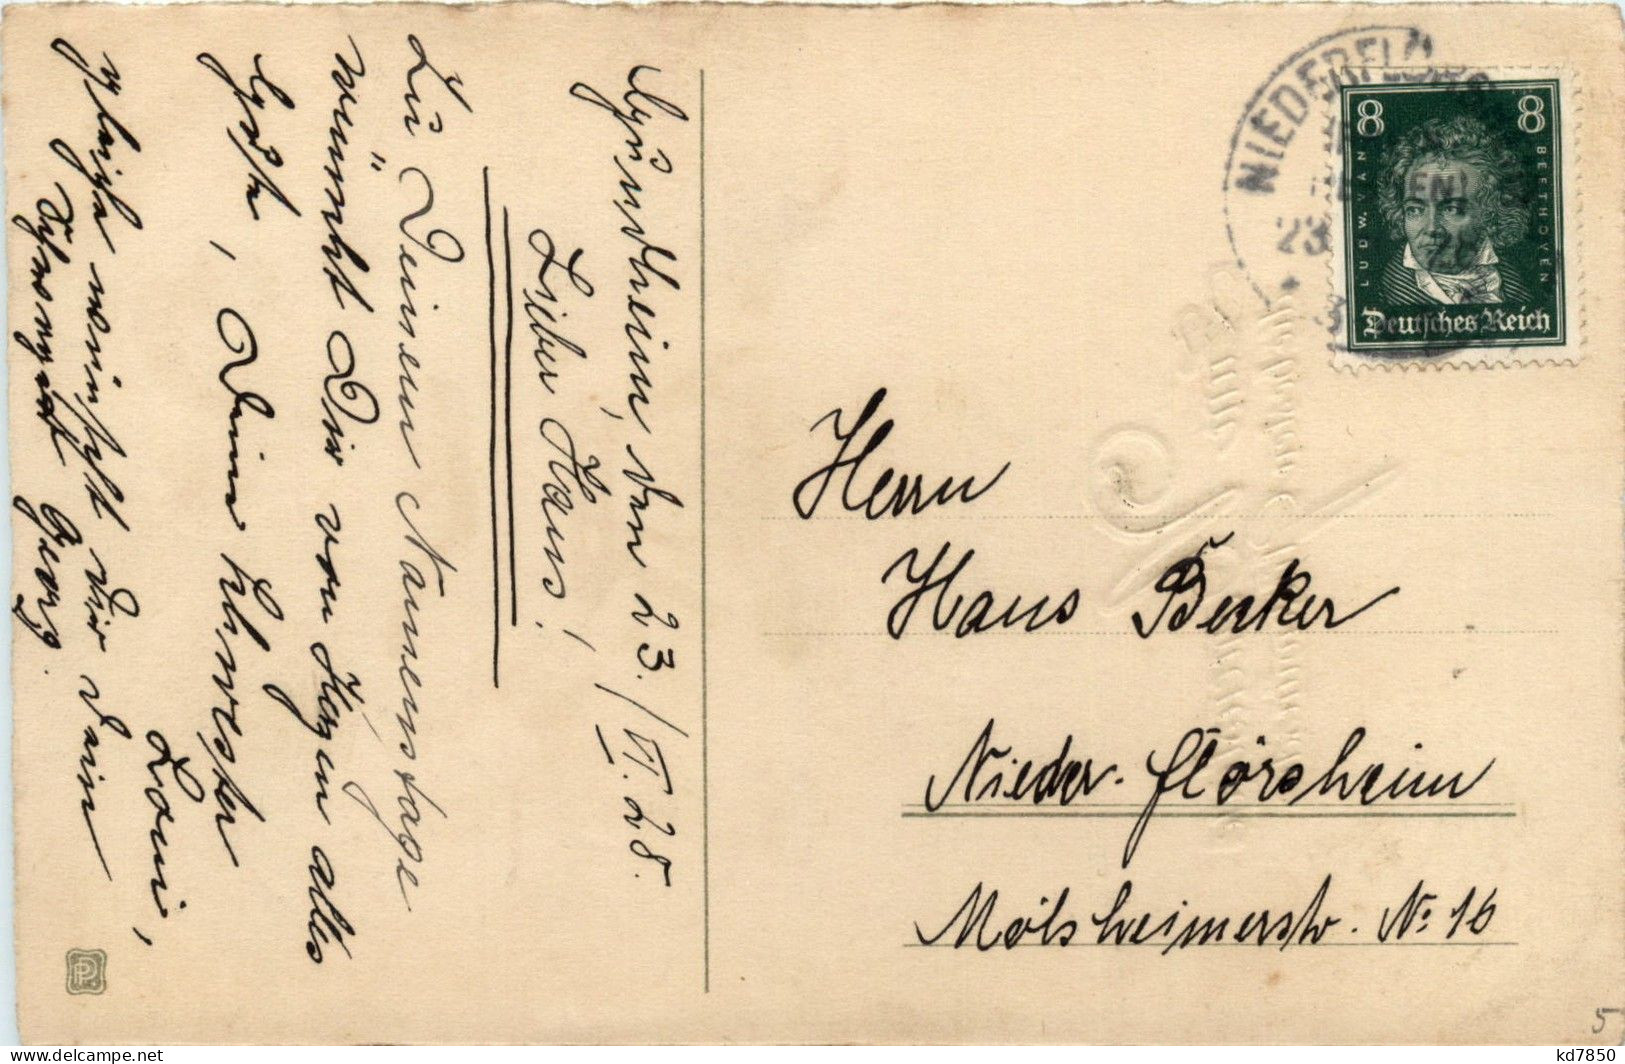 Gundheim, den 23./VI. 28.
Lieber Hans!
Zu Deinem Namenstage
wünscht Dir von Herzen alles
Gute, Deine Schwester
Loni,
gleiche wünscht dir dein
Schwager Georg.
NIEDERFLÖRSHEIM
23
28
8 8
LUDW. VAN BEETHOVEN
Deutsches Reich
Herrn
Hans Becker
Nieder-Flörsheim
Mölsheimerstr. No 16
5
kd7850